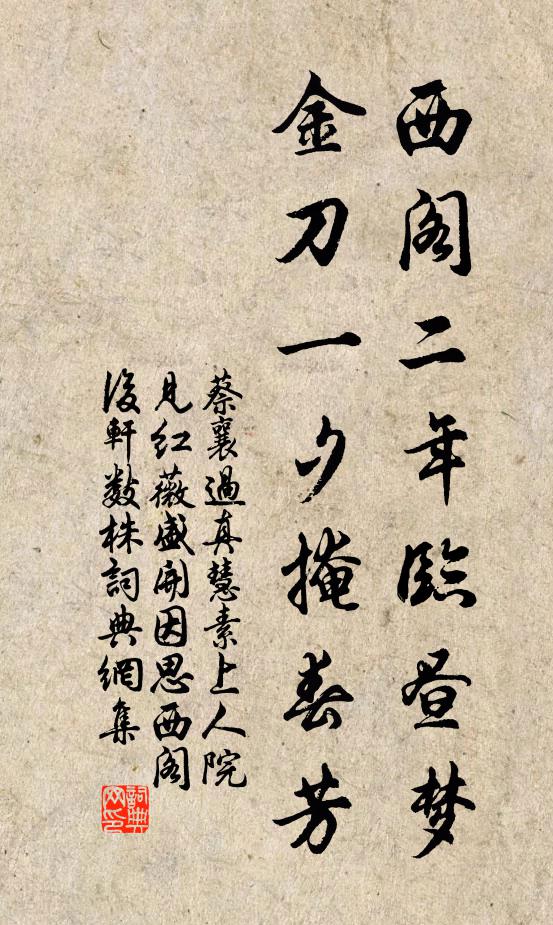 西阁二年临昼梦
金刀一夕掩春芳
蔡襄過真慧素上人院
見红薇盛開因思西阁
後軒数株詞典網集
詞典网印